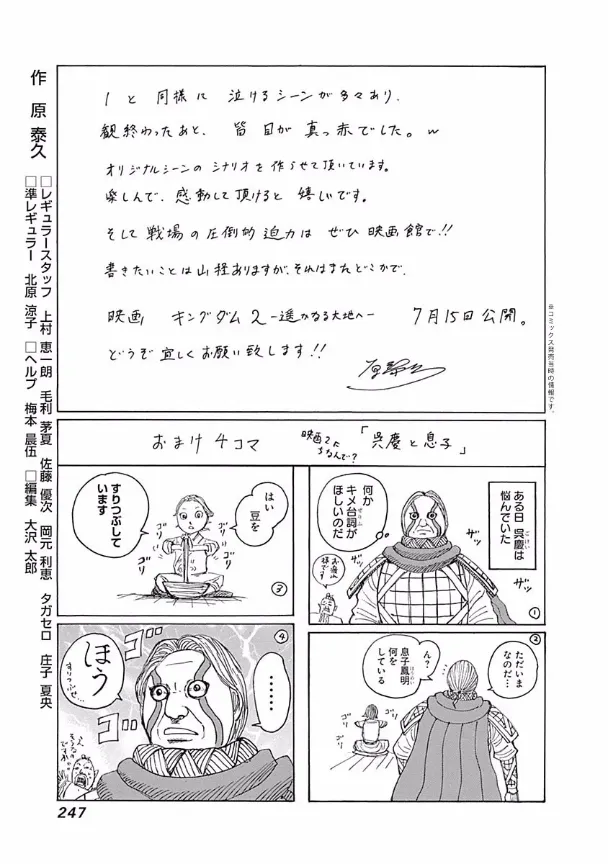 1と同様に泣けるシーンが多々あり、
観終わったあと、皆目が真っ赤でした。w
オリジナルシーンのシナリオを作らせて頂いています。
楽しんで、感動して頂けると嬉しいです。
そして戦場の圧倒的迫力はぜひ映画館で!!
書きたいことは山程ありますが、それはまたどこかで、
映画 キングダム2 -遥かなる大地へ- 7月15日公開。
どうぞ宜しくお願い致します!!
※コミックス発売当時の情報です。
おまけ4コマ
「呉慶と息子」
①
ある日 呉慶は
悩んでいた
何か
キメ台詞が
ほしいのだ
ザッ
ザッ
②
ただいま
なのだ…
ん?
息子鳳明
何を
している
ゴリ
ゴリ
③
はい
豆を
すりつぶして
います
ゴリ
ゴリ
④
……
ほう
すりつぶせ…
ゴリ
ゴリ
作 原 泰久
□レギュラースタッフ 上村 恵一朗 毛利 茅夏 佐藤 優次 岡元 利恵 タガセロ 庄子 夏央
□準レギュラー 北原 涼子 □ヘルプ 梅本 晨伍 □編集 大沢 太郎
247